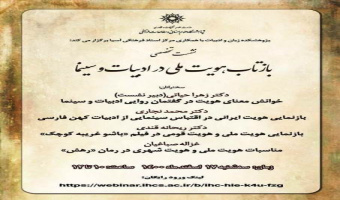 پژوهشکده زبان و ادبیات با همکاری مرکز اسناد فرهنگی آسیا برگزار می کند:
نشست تخصصی
بازتاب هویت ملی در ادبیات و سینما
سخنرانان:
دکتر زهرا حیاتی (دبیر نشست)
خوانش معنای هویت در گفتمان روایی ادبیات و سینما
دکتر محمد نجاری
بازنمایی هویت ایرانی در اقتباس سینمایی از ادبیات کهن فارسی
دکتر ریحانه قندی
بازنمایی هویت ملی و هویت قومی در فیلم «باشو غریبه کوچک»
غزاله صباغیان
مناسبات هویت ملی و هویت شهری در رمان «رهش»
زمان: سه‌شنبه ۱۷ اسفندماه ۱۴۰۰ ساعت: ۱۰ تا ۱۲
لینک ورود رایگان:
https://webinar.ihcs.ac.ir/b/ihc-hie-k4u-fzg